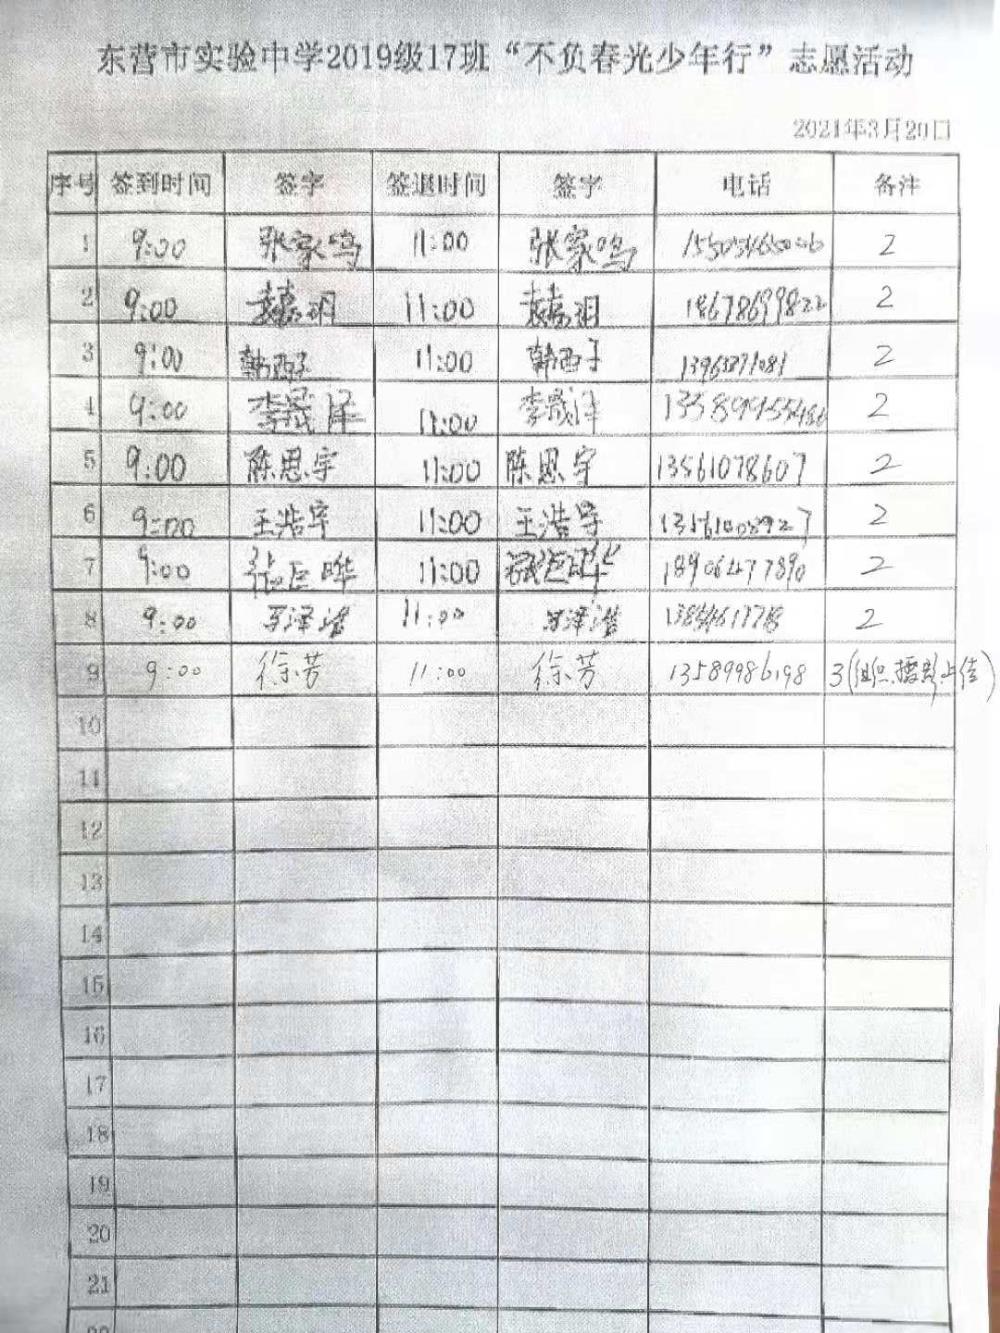 东营市实验中学2019级17班“不负春光少年行”志愿活动
2021年3月20日
序号 签到时间 签字 签退时间 签字 电话 备注
1 9:00 张家鸣 11:00 张家鸣 2
2 9:00 11:00 18678699822 2
3 9:00 韩西子 11:00 韩西子 2
4 9:00 李晟泽 11:00 李晟泽 2
5 9:00 陈思宇 11:00 陈思宇 13561078607 2
6 9:00 王浩宇 11:00 王浩宇 2
7 9:00 11:00 18906477890 2
8 9:00 11:00 2
9 9:00 徐芳 11:00 徐芳 13589986198 3(组织、上传)
10
11
12
13
14
15
16
17
18
19
20
21
22